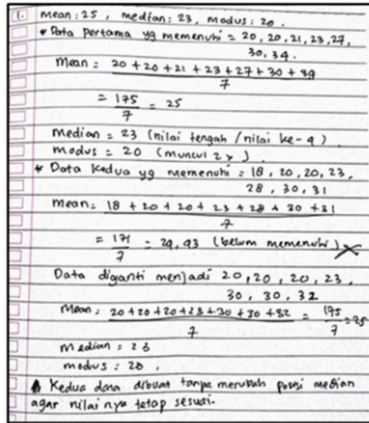 1. mean : 25 , median : 23, modus : 20.
* Data pertama yg memenuhi = 20, 20, 21, 23, 27,
30, 34.
mean = 20 + 20 + 21 + 23 + 27 + 30 + 34
7
= 175 = 25
7
median = 23 (nilai tengah / nilai ke-4)
modus = 20 (muncul 2x)
* Data kedua yg memenuhi = 18, 20, 20, 23,
28, 30, 31
mean = 18 + 20 + 20 + 23 + 28 + 30 + 31
7
= 171 = 24,43 (belum memenuhi) X
7
Data diganti menjadi 20, 20, 20, 23,
30, 30, 32
Mean = 20 + 20 + 20 + 23 + 30 + 30 + 32 = 175 = 25
7 7
median = 23
modus = 20.
Kedua data dibuat tanpa merubah posisi median
agar nilai nya tetap sesuai.